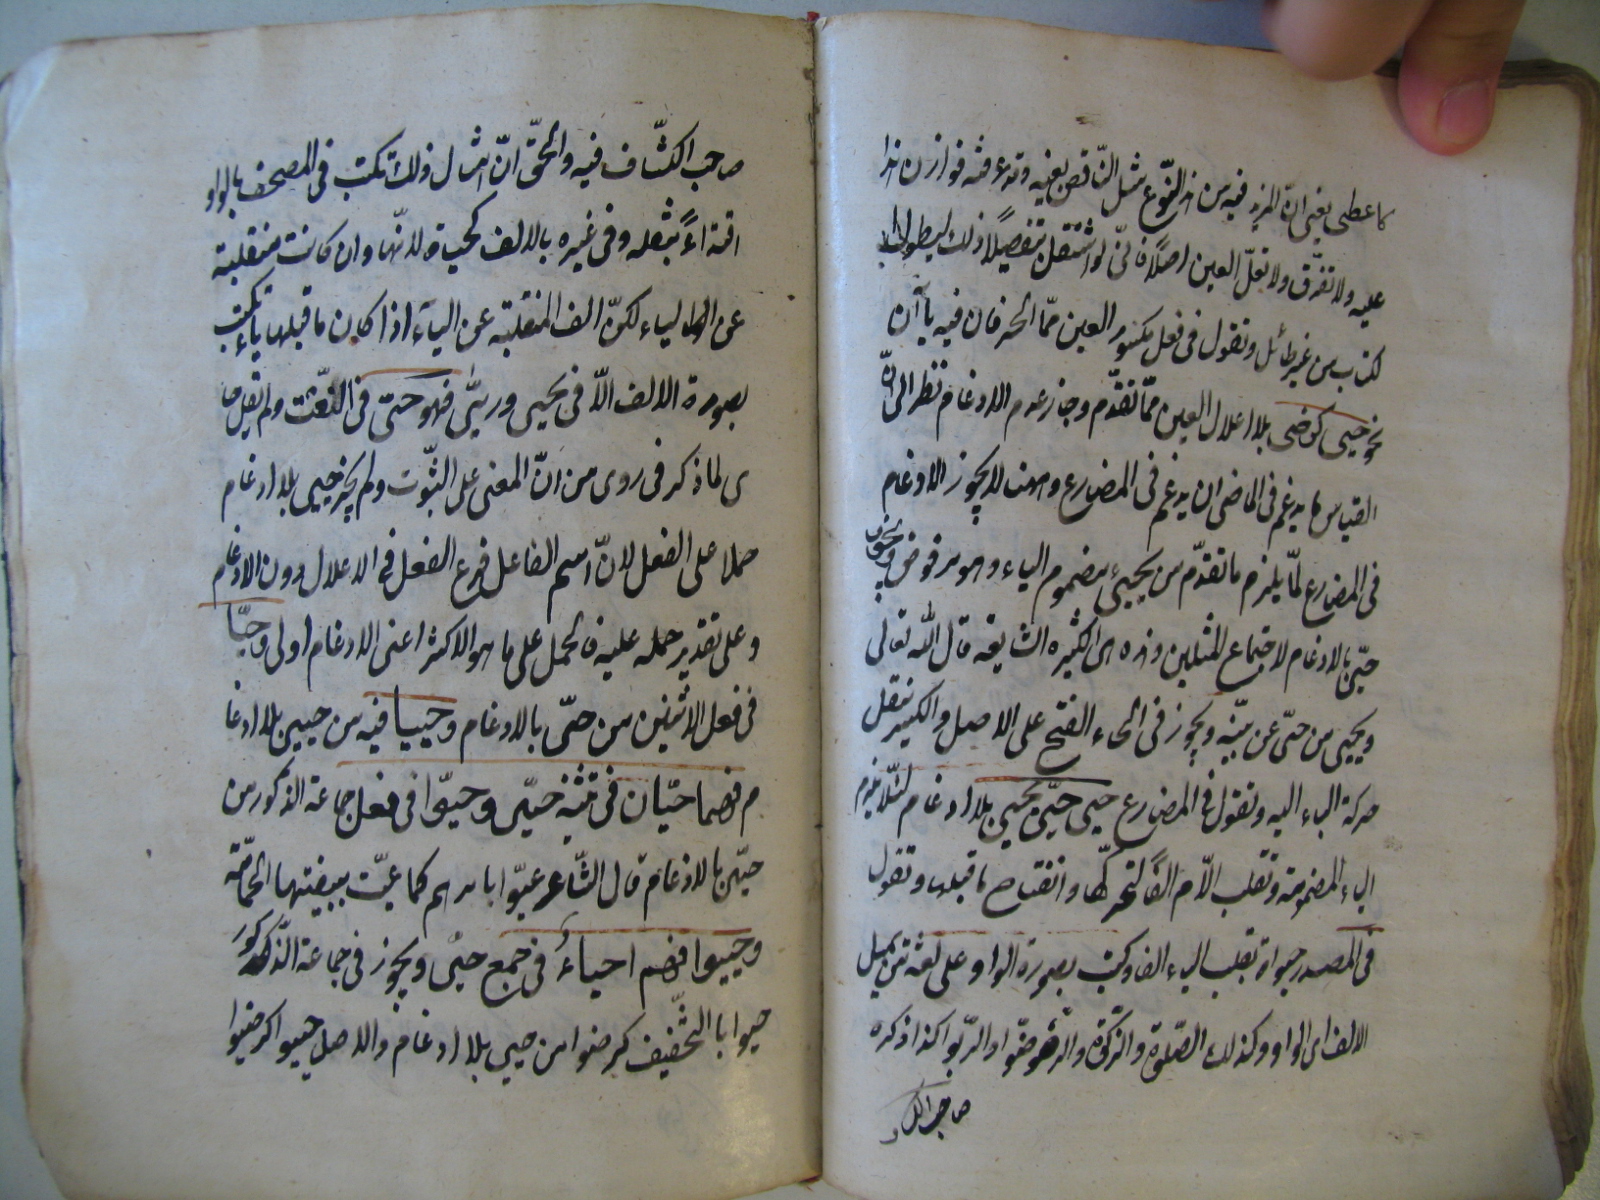 كاعطى يعنى ان المزيد فيه من هذا النوع مثل الناقص بعينه وقد عرفته فوازن هذا
عليه ولا تفرق ولا تعل العين اصلا فانى لو اشتغل بتفصيل ذلك ليطول
الكتاب من غير طائل وتقول فى فعل مكسور العين مما الحرفان فيه ياآن
نحو حيى كرضى بلا اعلال العين مما تقدم وجاز عدم الادغام نظرا الى انّ
القياس ما يدغم فى الماضى ان يدغم فى المضارع وههنا لا يجوز الادغام
فى المضارع لما يلزم ما تقدم من يحيىُ مضموم الياء وهو مرفوض ويجوز
حىّ بالادغام لاجتماع المثلين وهذه هى الكثيرة الشايعة قال الله تعالى
ويحيى من حىّ عن بيّنه ويجوز فى الحاء الفتح على الاصل والكسر بنقل
حركة الياء اليه وتقول فى المضارع حيى حىّ يحيى بلا ادغام لئلا يلزم
الياء المضمومة وتقلب اللّام الفا لتحركها وانفتاح ما قبلها وتقول
فى المصدر حيواة بقلب الياء الفا وكتب بصورة الواو على لغة من يميل
الالف الى الواو وكذلك الصّلوة والزّكوة والربوا كذا ذكره
صاحب الك
صاحب الكشّاف فيه والحقّ انّ امثال ذلك تكتب فى المصحف بالواو
اقتداءً بنقله وفى غيره بالالف كحياة لانّها وان كانت منقلبة
عن الياء لكنّ الف المنقلبة عن الياء اذا كان ما قبلها ياء تكتب
بصورة الالف الّا فى يحيى وريّى فهو حىّ فى النّعت ولم يقل
ى لما ذكر فى روى من انّ المعنى على الثّبوت ولم يجز حيى بلا ادغام
حملا على الفعل لانّ اسم الفاعل فرع الفعل فى الاعلال دون الادغام
وعلى تقدير حمله عليه فالحمل على ما هو الاكثر اعنى الادغام اولى وحيّا
فى فعل الاثنين من حىّ بالادغام وحييا فيه من حيى بلا ادغا
م فهما حيّان فى تثنية حىّ وحيوّا فى فعل جماعة الذكور من
حىّ بالادغام قال الشّاعر عيّوا بامرهم كما عيّت ببيضتها الحمامة
وحييوا فهم احياءُ فى جمع حىّ ويجوز فى جماعة الذّكور
حيوا با التّخفيف كرضوا من حيى بلا ادغام والاصل حييوا كرضيوا